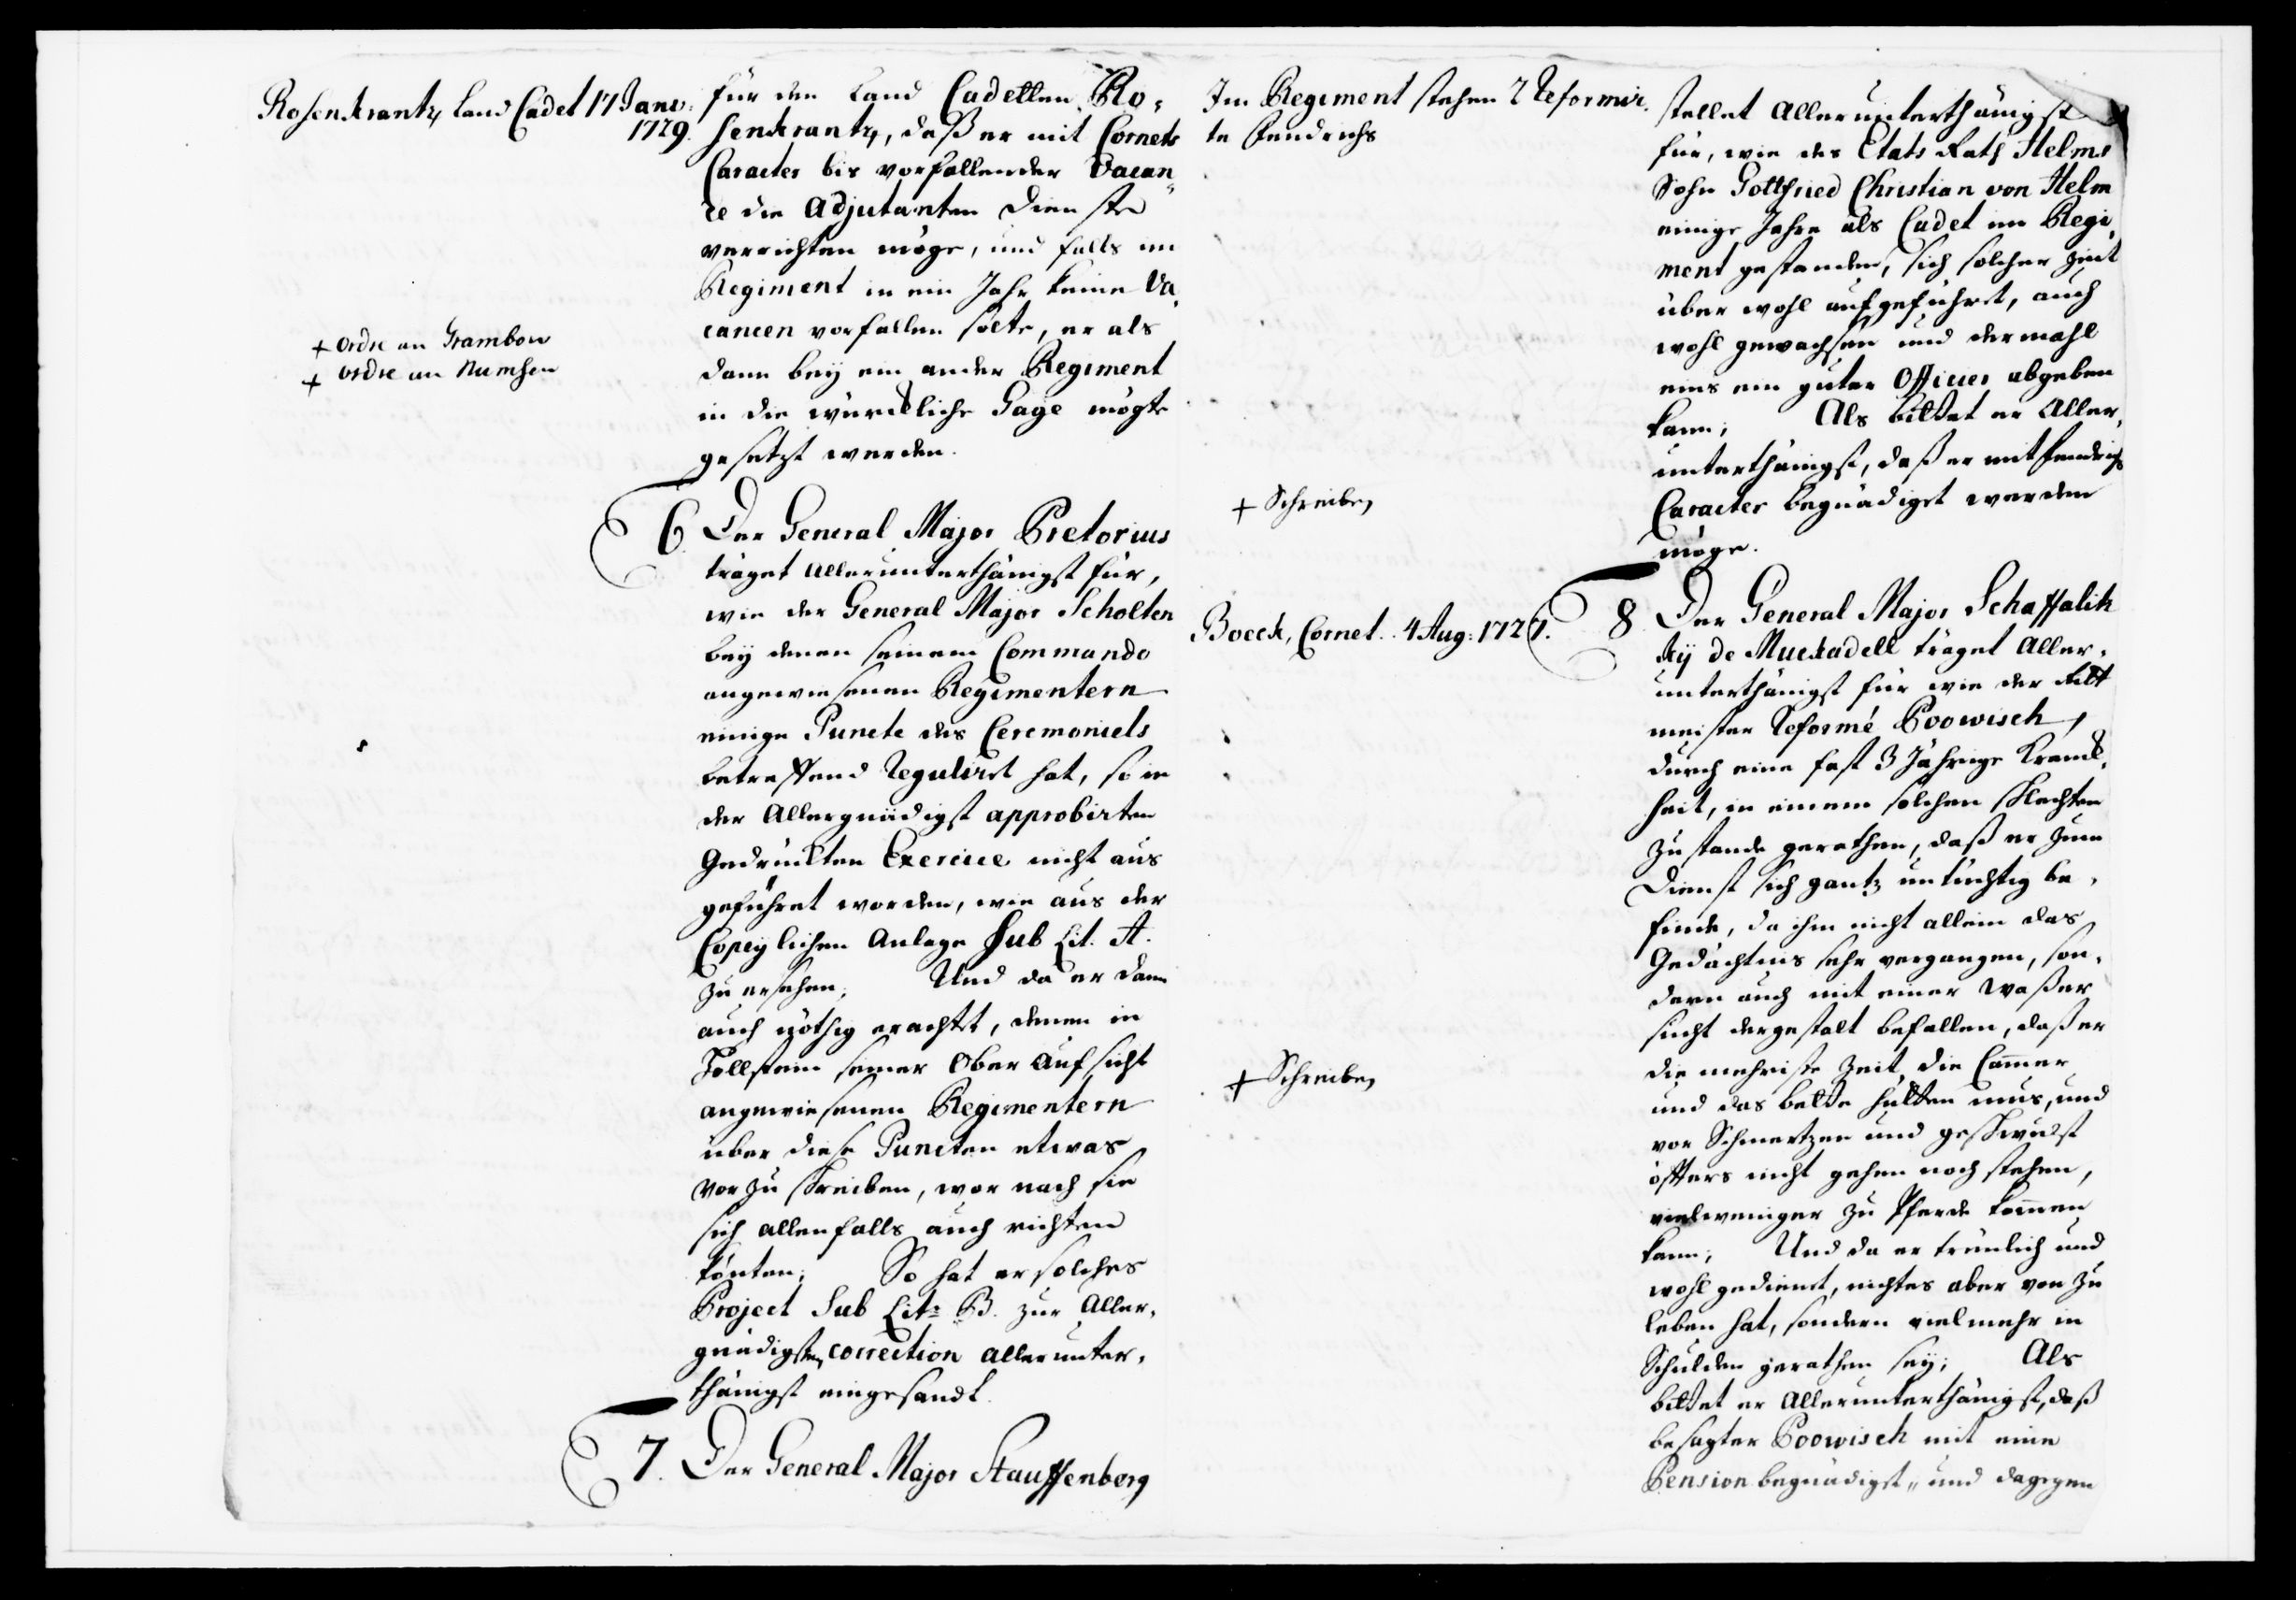 Rosenkrantz, Land Cadet 17 Janv:
1729.
+ ordre an Grambow
+ ordre an Numsen
für den Land Cadetten Ro,
senkrantz, daß er mit Cornets
Caracter bis vorfallender Vacan,,
ce die Adjutanten Dienste
verrichten möge, und falls im
Regiment in ein Jahr keine Va,
cancen vorfallen solte, er als
dann bey ein ander Regiment
in die würckliche Gage mögte
gesetzt werden.
6. Der General Major Pretorius
träget Allerunterthänigst für,
wie der General Major Scholten
bey denen seinem Commando
angewiesenen Regimentern
einige Puncte des Ceremoniels
betreffend Reguliret hat, so in
der Allergnädigst approbirten
Gedruckten Exercice nicht aus
geführet worden, wie aus der
Copeylichen Anlage Sub Lit. A.
zu ersehen; Und da er dann
auch nöthig erachtet, denen in
Hollstein seiner Ober Aufsicht
angewiesenen Regimentern
über diese Puncten etwas
vorzuschreiben, wor nach sie
sich allenfalls auch richten
könten; So hat er solches
Project Sub Lit: B. zur Aller,
gnädigsten correction allerunter,
thänigst eingesandt.
7. Der General Major Stauffenberg
Im Regiment stehen 2 Reformir.
te Fendrichs
+ Schreiben
Boeck, Cornet. 4 Aug: 1727.
+ Schreiben
stellet Allerunterthänigst
für, wie des Etats Rath Helms
Sohn Gottfried Christian von Helm
einige Jahre als Cadet im Regi,
ment gestanden, sich solcher Zeit
über wohl aufgeführet, auch
wohl gewachsen und dermahl
eins ein guter Officier abgeben
kann; Als bittet er Aller,
unterthänigst, daß er mit Fendrichs
Caracter begnädiget werden
möge.
8. Der General Major Schaffalitz
ky de Muckadell träget Aller,
unterthänigst für wie der Ritt
meister Reformé Poowisch,
durch eine fast 3 Jährige Kranck,
heit, in einem solchen schlechten
Zustande gerathen, daß er zum
Dienst sich gantz untüchtig be,
finde, da ihm nicht allein das
Gedächtnis sehr vergangen, son,
dern auch mit einer Waßer
sucht dergestalt befallen, daß er
die mehriste Zeit die Cam̄er
und das bette hütten mus, und
vor Schmertzen und geschwulst
öffters nicht gehen noch stehen,
vielweniger zu Pferde kom̄en
kann; Und da er treulich und
wohl gedienet, nichtes aber von zu
leben hat, sondern vielmehr in
Schulden gerathen sey; Als
bittet er Allerunterthänigst, daß
besagter Poowisch mit eine
Pension begnädigt,, und dagegen